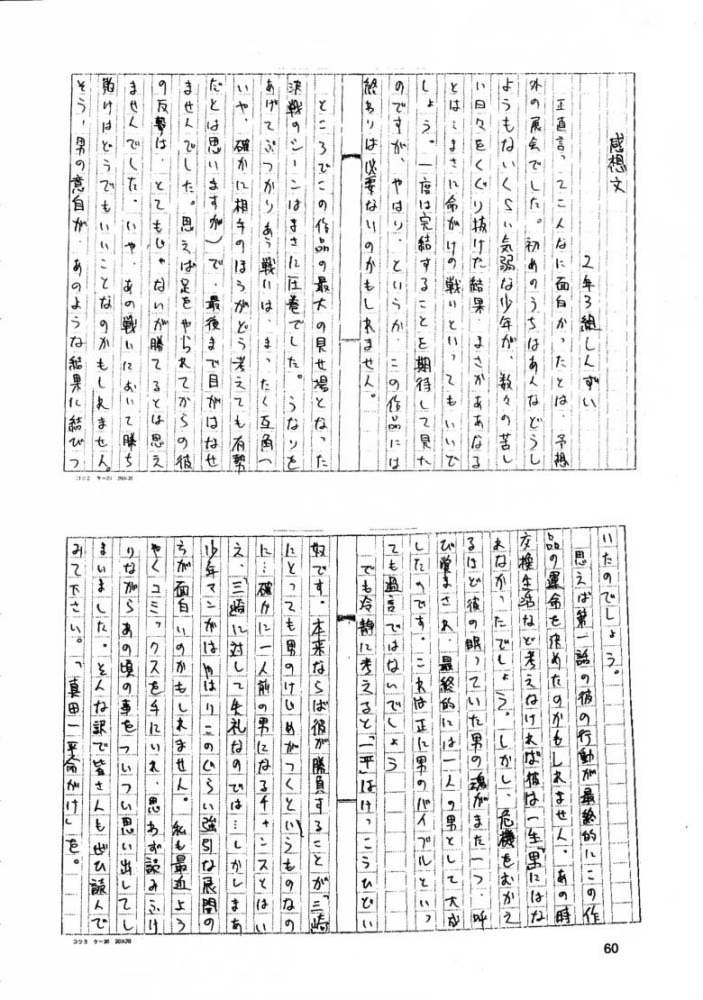 感想文
２年３組しんずい
正直言ってこんなに面白かったとは、予想
外の展会でした。初めのうちはあんなどうし
ようもないくらい気弱な少年が、数々の苦し
い日々をくぐり抜けた結果、まさかああなる
とは…まさに命がけの戦いといってもいいで
しょう。一度は完結することを期待して見た
のですが、やはり、というか、この作品には
終わりは必要ないのかもしれません。
ところでこの作品の最大の見せ場となった
決戦のシーンはまさに圧巻でした。うなりを
あげてぶつかりあう戦いは、まったく互角（
いや、確かに相手のほうがどう考えても有勢
だとは思いますが）で、最後まで目がはなせ
ませんでした。思えば足をやられてからの彼
の反勢は、とてもじゃないが勝てるとは思え
ませんでした、いや、あの戦いにおいて勝ち
負けはどうでもいいことなのかもしれません。
そう、男の意自が、あのような結果に結びつ
コクヨ ケー31 20×20
いたのでしょう。
思えば第一話の彼の行動が最終的にこの作
品の運命を決めたのかもしれません。あの時
交換生活など考えなければ彼は一生「男」にはな
れなかったでしょう。しかし、危機をむかえ
るほど彼の眠っていた男の魂がまた一つ、呼
び覚まされ、最終的には一人の男として大成
したのです。これは正に男のバイブルといっ
ても過言ではないでしょう
でも冷静に考えると「一平」はけっこうひどい
奴です。本来ならば彼が勝負することが「三崎」
にとっても男のけじめがつくというものなの
に…確かに一人前の男になるチャンスとはい
え、「三崎」に対して失礼なのでは…しかしまあ
少年マンガはやはりこのぐらい強引な展開の
ちが面白いのかもしれません。私も最近よう
やくコミックスを手にいれ、思わず読みふけ
りながらあの頃の事をついつい思い出してし
まいました。そんな訳で皆さんもぜひ読んで
みて下さい。「真田一平命がけ」を。
コクヨ ケー31 20×20
60